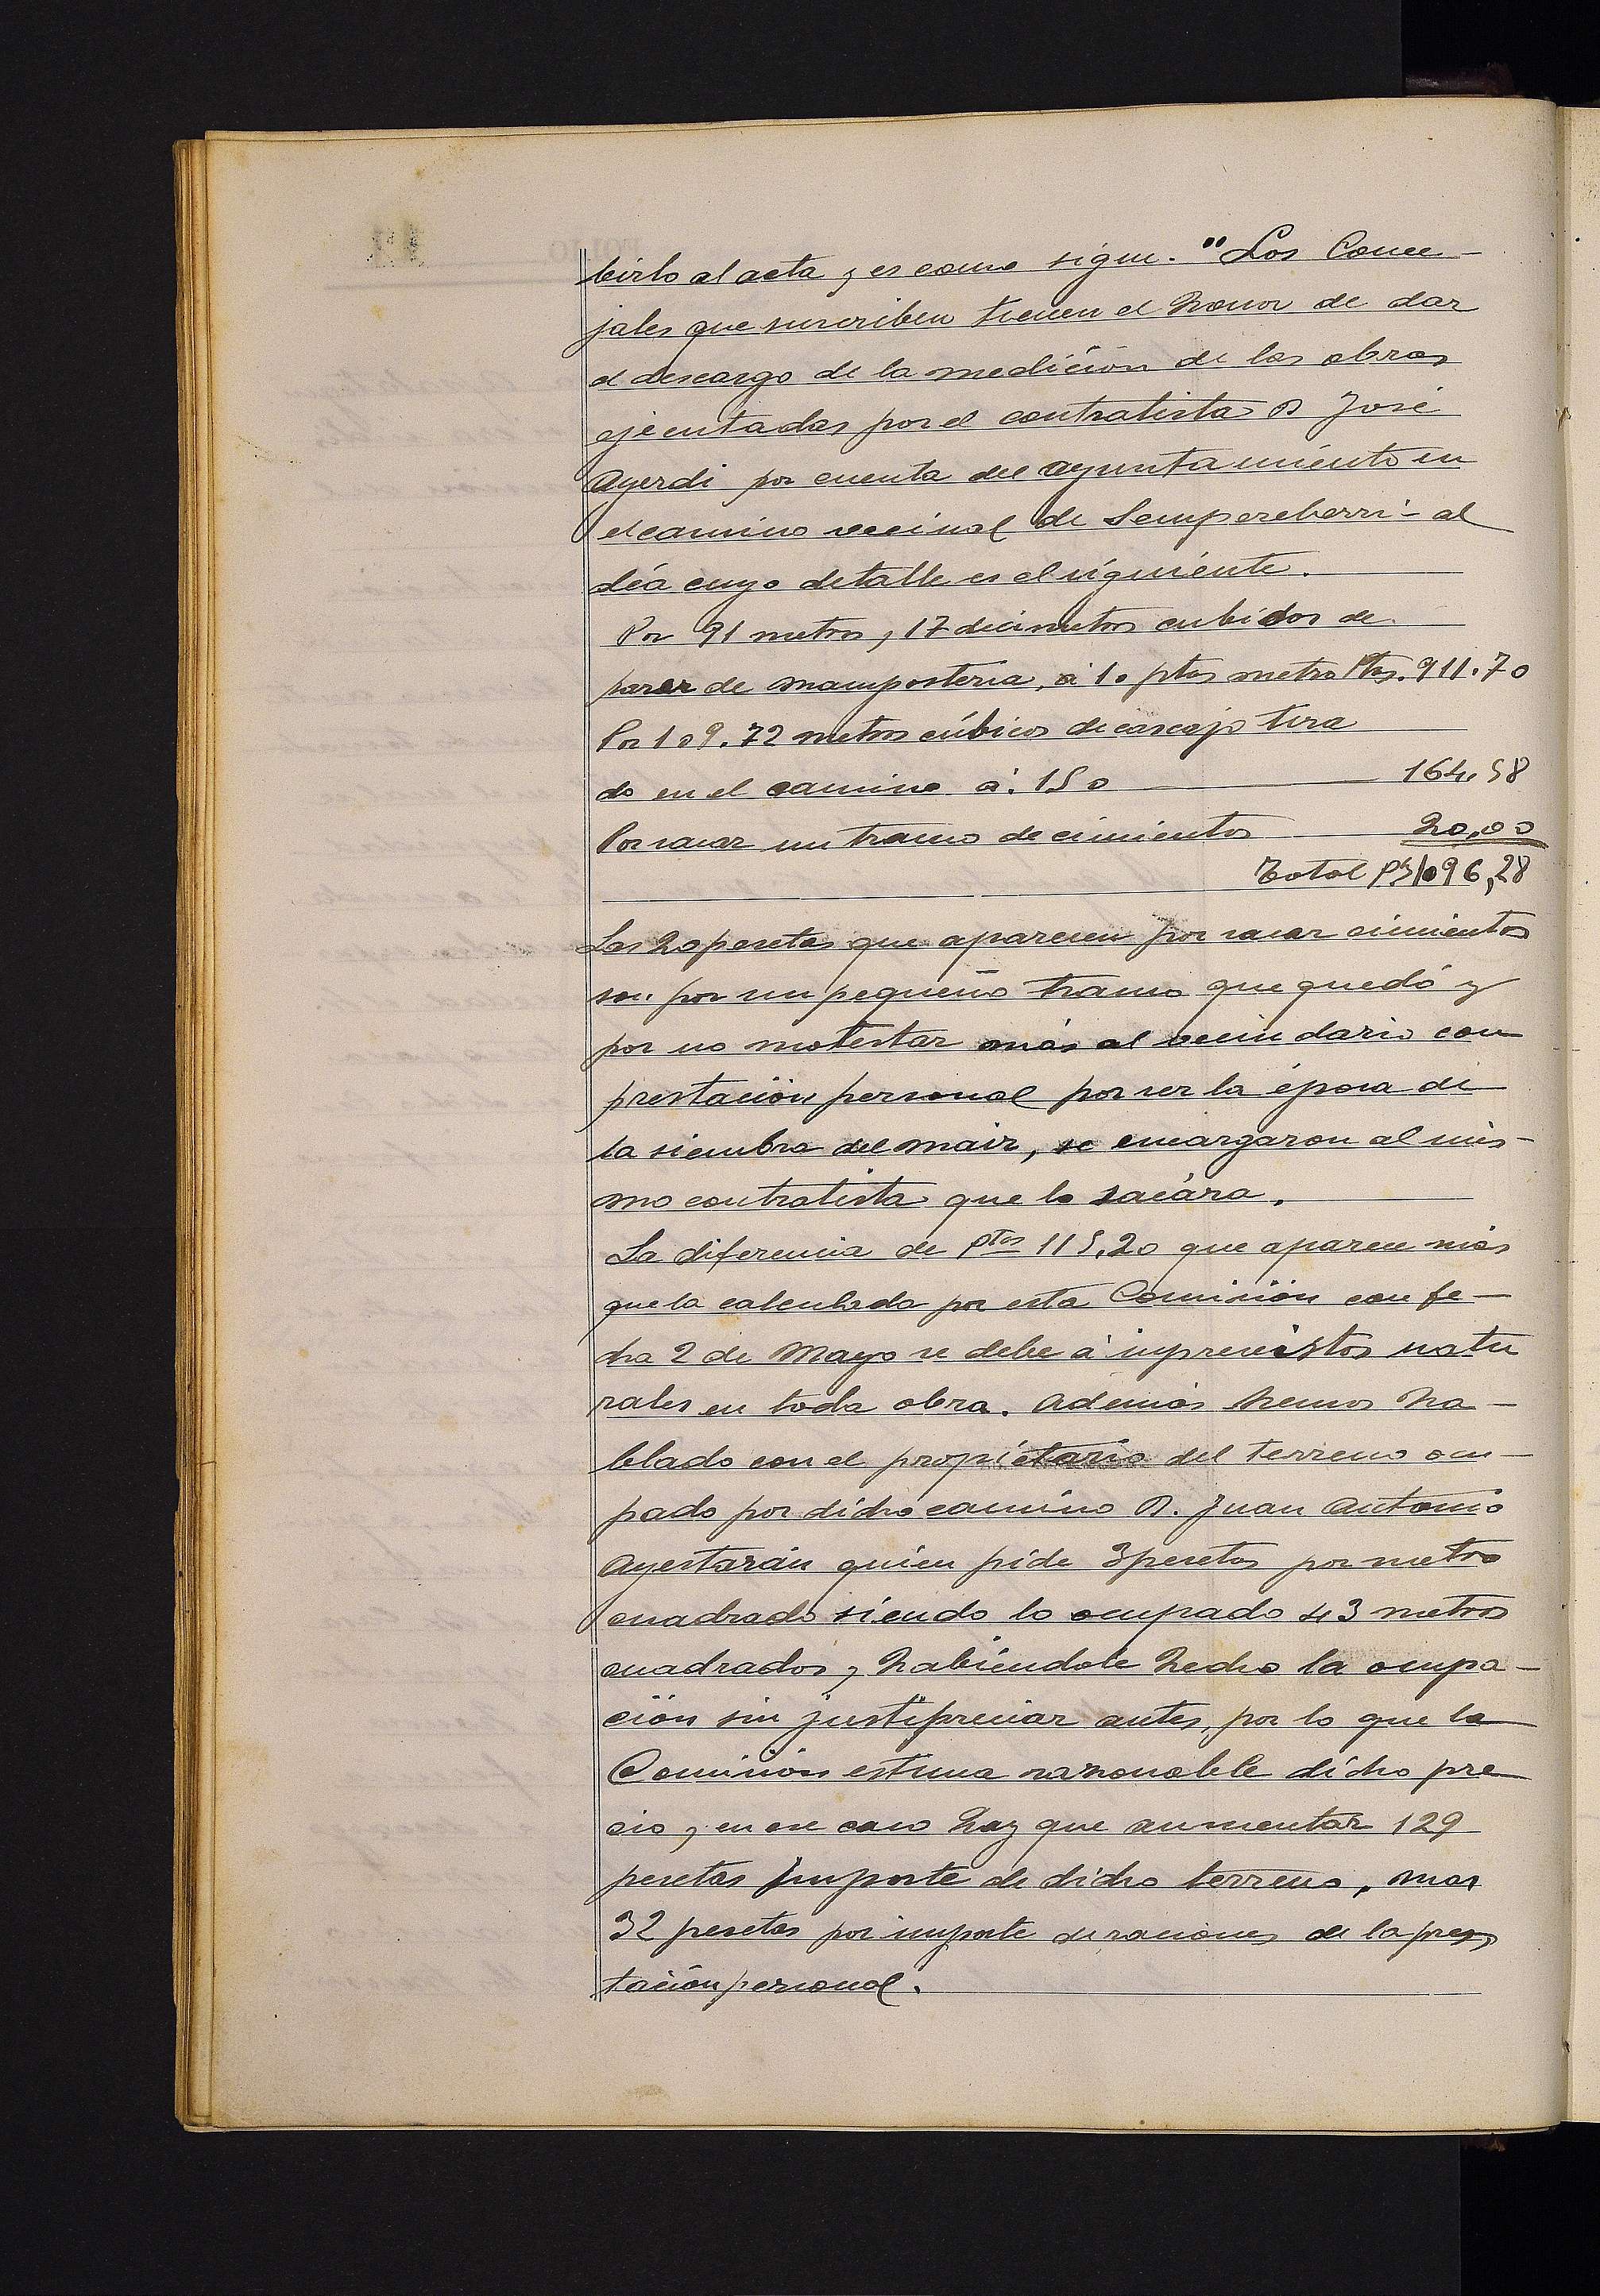 birlo al acta y es como sigue. "Los Conce-
jales que suscriben tienen el honor de dar
el descargo de la medición de las obras
ejecutadas por el contratista D José
Ayerdi por cuenta del ayuntamiento en
el camino vecinal de Semperebarri-al
dea cuyo detalle es el siguiente.
Por 91 metros, 17 decimetros cubidos de
parer de mamposteria, á 10 ptas metro Ptas. 911.70
Por 109.72 metros cúbicos de cascajo tira
do en el camino á. 150 164,58
Por sacar un tramo de cimientos 20,00
Total Pts 1096,28
Las 20 pesetas que aparecen por sacar cimientos
son por un pequeño tramo que quedó y
por no molestar más al vecindario con
prestación personal por ser la época de
la siembra del mair, se encargaron al mis-
mo contratista que lo sacára.
La diferencia de Ptas 115,20 que aparece más
que la calculada por esta Comisión con fe-
cha 2 de Mayo se debe á imprevistos natu
rales en toda obra. Además hemos ha-
blado con el propietario del terreno ocu-
pado por dicho camino D. Juan Antonio
Ayestarán quien pide 3 pesetas por metro
cuadrado siendo lo ocupado 43 metros
cuadrados, habiéndole hecho la ocupa-
ción sin justipreciar antes, por lo que la
Comisión estima razonable dicho pre
cio, en ese caso hay que aumentar 129
pesetas importe de dicho terreno, mas
32 pesetas por importe de raciones de la pres
tación personal.